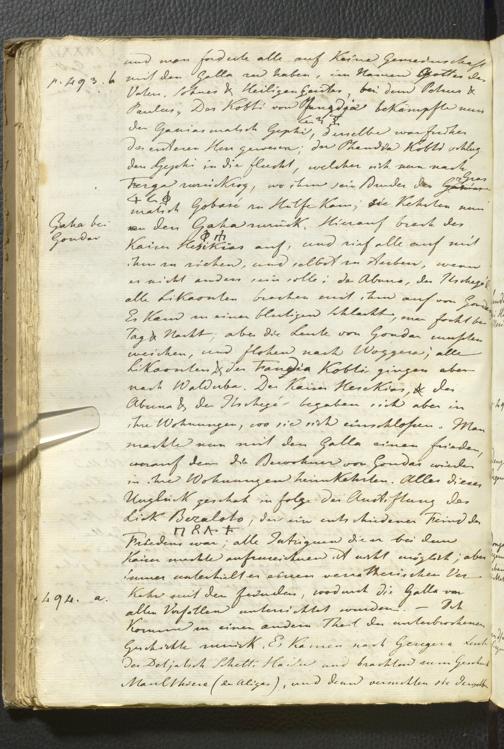 und man forderte alle auf keine Gemeinschaft
p. 493. b mit den Galla zu haben, im Namen Gottes des
Vaters, Sohnes & Heiligen Geistes, bei dem Petrus &
Paulus. Das Kobti von bekämpfte nun
den Gasiasmatsch Gephi, derselbe war früher
des ersteren Herr gewesen; der Kobti schlug
den Gephi in die flucht, welcher sich nun nach
zurückzog, wo ihm sein Bruder der
matsch Gobasé zu Hülfe kam; sie kehrten nun
Gaha bei
Gondar
zu dem Gaha zurück. Hierauf brach des
Kaiser Heskias auf, und rief alle auf mit
ihm zu ziehen, und selbst zu sterben, wenn
es nicht anders sein solle; da Abuna, der Itschegé
alle Likaonten brachen mit ihm auf von Gondar
Es kam zu einer blutigen Schlacht, man focht bei
Tag & Nacht, aber die Leute von Gondar mussten
weichen, und flohen nach Woggera; alle
Likaonten & der Kobti gingen aber
nach Waldubba. Der Kaiser Heseskias, & der
Abuna & der Itschegé begaben sich aber in
ihre Wohnungen, wo sie sich einschlossen. Man
machte nun mit den Galla einen Frieden,
worauf denn die Bewohner von Gondar wieder
in ihre Wohnungen heimkehrten. Alles dieses
Unglück geschah in folge der Anstiftung des
Lisk Bezaloto, der ein entschiedener Feind des
Friedens war; alle Intriguen die er bei dem
Kaiser machte aufzuzeichnen ist nicht möglich; aber
immer unterhielt er einen verrätherischen Ver-
494. a. kehr mit den Feinden, wodurch die Galla von
allen Vorfällen unterrichtet wurden. — Ich
komme zu einem andern Theil der unterbrochenen
Geschichte zurück. Es kamen nach Gerегera Leute
des Detjatsch Schetti Hailu und brachten zum Geschenk
Maulthiere (der Aligas), und dann versuchten sie